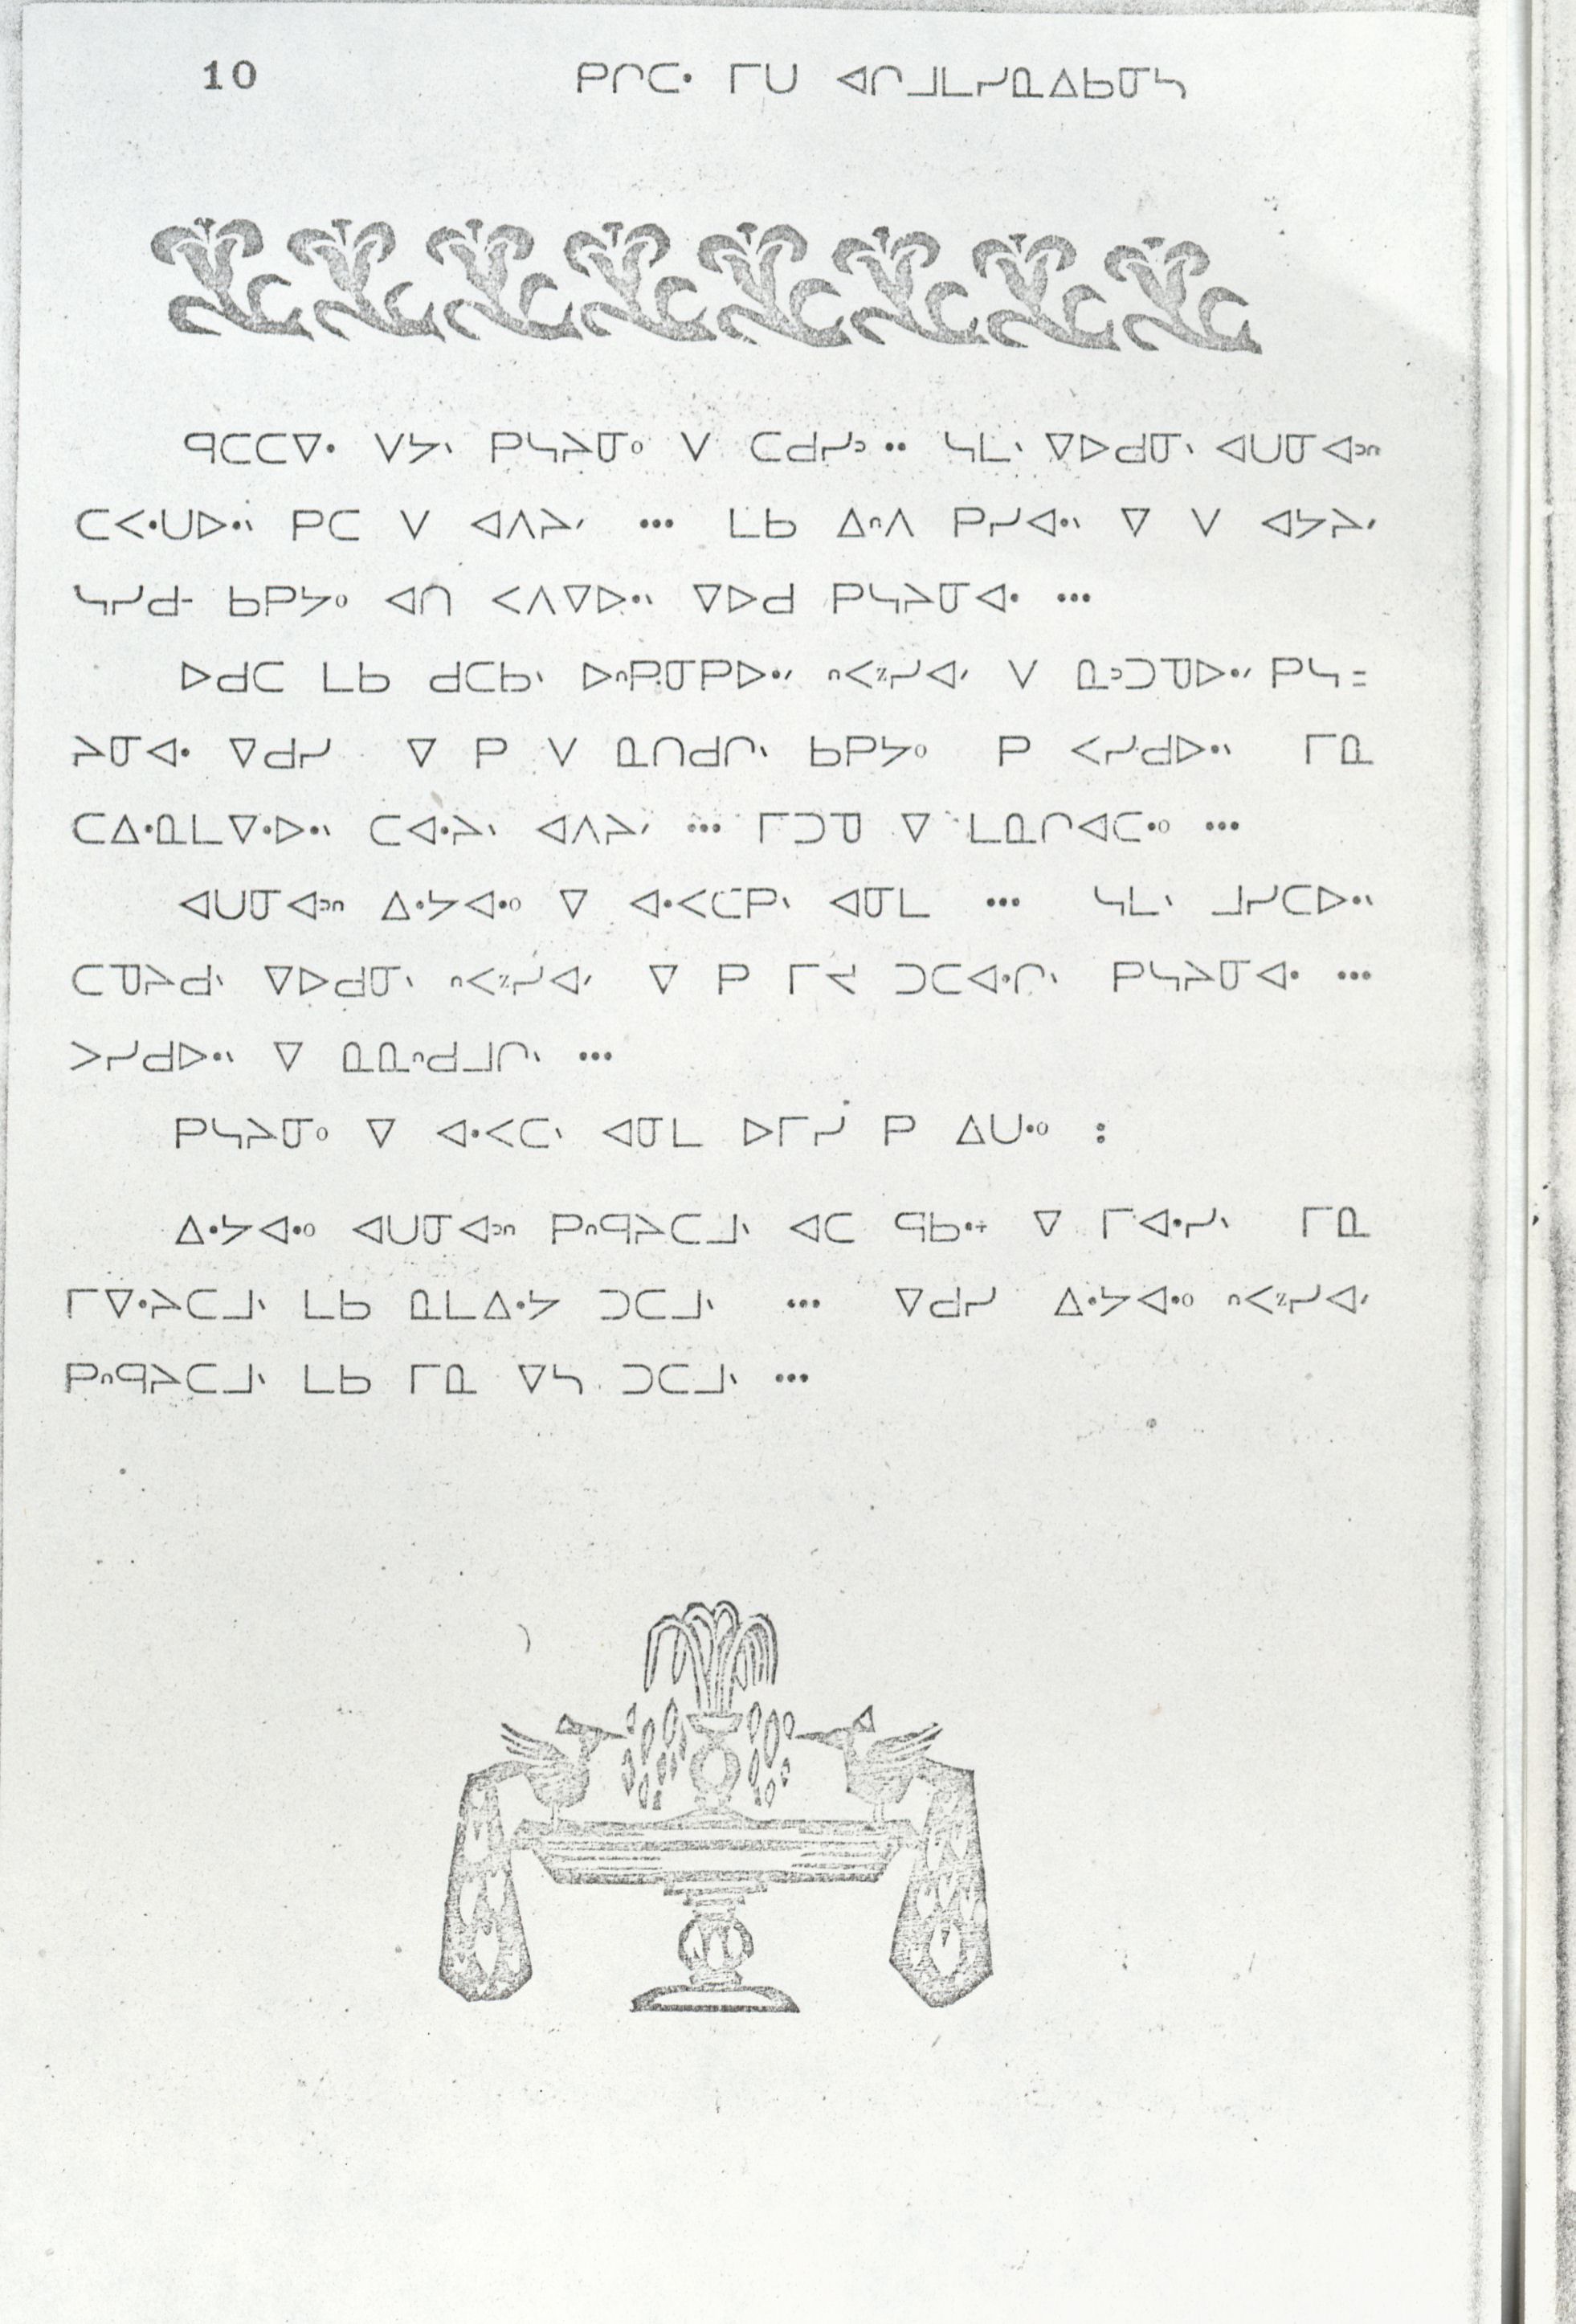 10 ᑭᒋᑕᐧ ᒥᑌ ᐊᒋᒧᒪᓯᓇᐃᑲᓂᓴ
ᑫᑕᑕᐁᐧ ᐯᔭᐠ ᑭᓴᔨᓂᐤ ᐯ ᑕᑯᓯᐣ ·· ᓴᒪᐠ ᐁᐅᑯᓂᐠ ᐊᑌᓂᐊᐣᐢ
ᑕᐸᐧᑌᐅᐧᐠ ᑭᑕ ᐯ ᐊᐱᔨᐟ ··· ᒪᑲ ᐃᐢᐱ ᑭᓯᐊᐧᐠ ᐁ ᐯ ᐊᔭᔨᐟ
ᓴᓯᑯᐨ ᑲᑭᔭᐤ ᐊᑎ ᐸᐱᐁᐅᐧᐠ ᐁᐅᑯ ᑭᓴᔨᓂᐊᐧ ···
ᐅᑯᑕ ᒪᑲ ᑯᑕᑲᐠ ᐅᐢᑭᓂᑭᐅᐧᐟ ᐢᐸᓯᐊᐟ ᐯ ᓇᐣᑐᑊᐅᐧᐟ ᑭᓴ=
ᔨᓂᐊᐧ ᐁᑯᓯ ᐁ ᑭ ᐯ ᓇᑎᑯᒋᐠ ᑲᑭᔭᐤ ᑭ ᐸᓯᑯᐅᐧᐠ ᒥᓇ
ᑕᐃᐧᓇᒪᐁᐧᐅᐧᐠ ᑕᐊᐧᔨᐠ ᐊᐱᔨᐟ ··· ᒥᑐᓀ ᐁ ᒪᓇᒋᐊᑕᐧᐤ ···
ᐊᑌᓂᐊᐣᐢ ᐃᐧᔭᐊᐧᐤ ᐁ ᐊᐧᐸᑕᑭᐠ ᐊᓂᒪ ··· ᓴᒪᐠ ᒧᓯᑕᐅᐧᐠ
ᑕᓀᔨᑯᐠ ᐁᐅᑯᓂᐠ ᐢᐸᓯᐊᐟ ᐁ ᑭ ᒥᔪ ᑐᑕᐊᐧᒋᐠ ᑭᓴᔨᓂᐊᐧ ···
ᐳᓯᑯᐅᐧᐠ ᐁ ᓇᓇᐢᑯᒧᒋᐠ ···
ᑭᓴᔨᓂᐤ ᐁ ᐊᐧᐸᑕᐠ ᐊᓂᒪ ᐅᒥᓯ ᑭ ᐃᑌᐧᐤ :
ᐃᐧᔭᐊᐧᐤ ᐊᑌᓂᐊᐣᐢ ᑭᐢᑫᔨᑕᒧᐠ ᐊᑕ ᑫᑲᐧᐩ ᐁ ᒥᐊᐧᓯᐠ ᒥᓇ
ᒥᐁᐧᔨᑕᒧᐠ ᒪᑲ ᓇᒪᐃᐧᔭ ᑐᑕᒧᐠ ··· ᐁᑯᓯ ᐃᐧᔭᐊᐧᐤ ᐢᐸᓯᐊᐟ
ᑭᐢᑫᔨᑕᒧᐠ ᒪᑲ ᒥᓇ ᐁᓴ ᑐᑕᒧᐠ ···